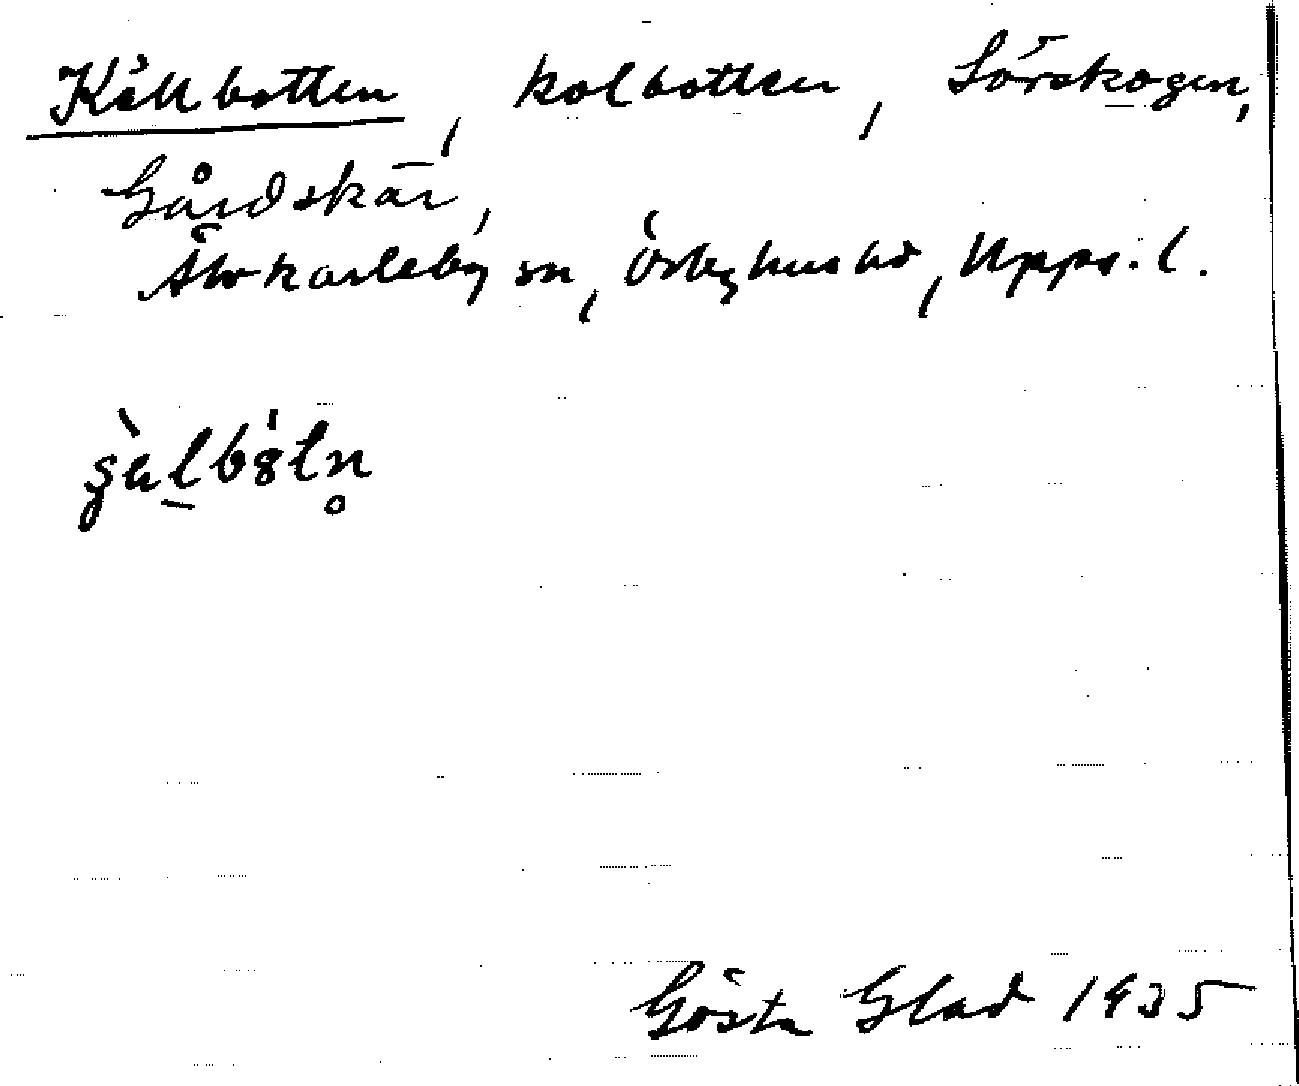 Källbotten, kolbotten, Sörskogen,
Gårdskär,
Älvkarleby sn, Örbyhus hd, Upps. l.
Gösta Glad 1935